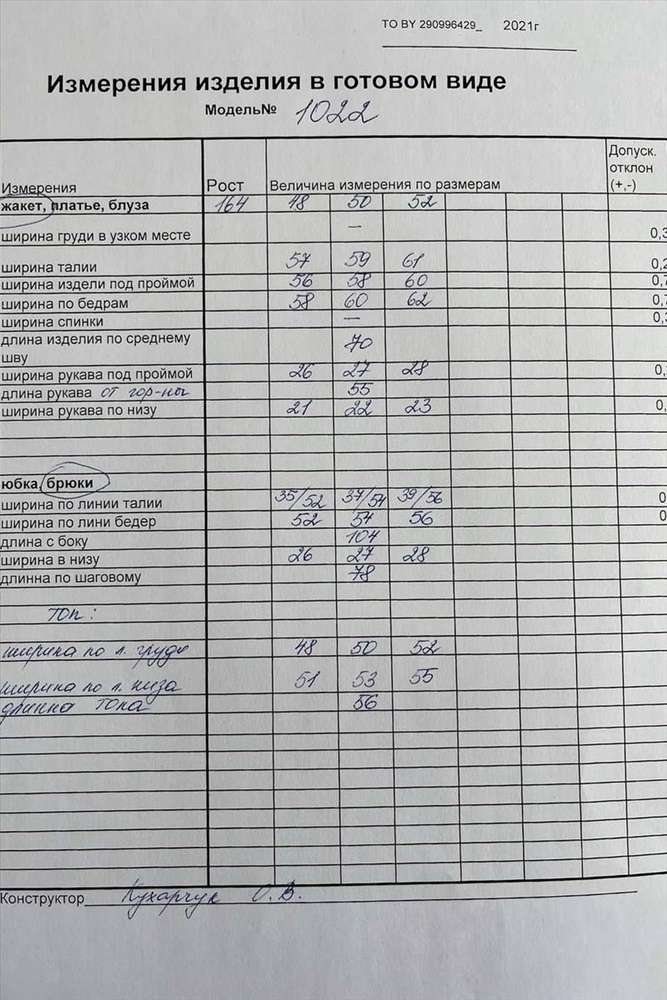 ТО BY 290996429_ 2021г
Измерения изделия в готовом виде
Модель№ 1022
Измерения Рост Величина измерения по размерам Допуск. отклон (+,-)
жакет, платье, блуза 164 48 50 52
ширина груди в узком месте — 0,3
ширина талии 57 59 61 0,2
ширина издели под проймой 56 58 60 0,7
ширина по бедрам 58 60 62 0,7
ширина спинки — 0,3
длина изделия по среднему
шву 70
ширина рукава под проймой 26 27 28
длина рукава от гор-ны 55
ширина рукава по низу 21 22 23 0,
юбка, брюки
ширина по линии талии 35/52 37/54 39/56 0
ширина по лини бедер 52 54 56 0
длина с боку 104
ширина в низу 26 27 28
длинна по шаговому 78
топ:
ширина по л. груди 48 50 52
ширина по л. низа 51 53 55
длинна топа 56
Конструктор Кухарчук О.В.